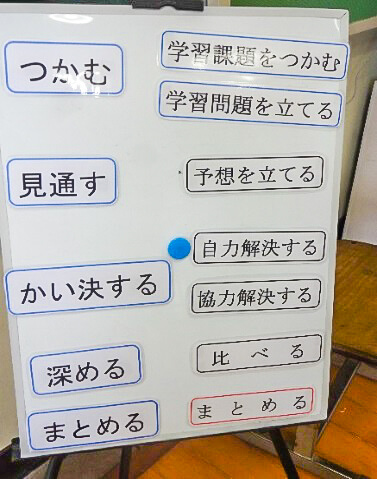 つかむ
学習課題をつかむ
学習問題を立てる
見通す
予想を立てる
かい決する
自力解決する
協力解決する
深める
比べる
まとめる
まとめる